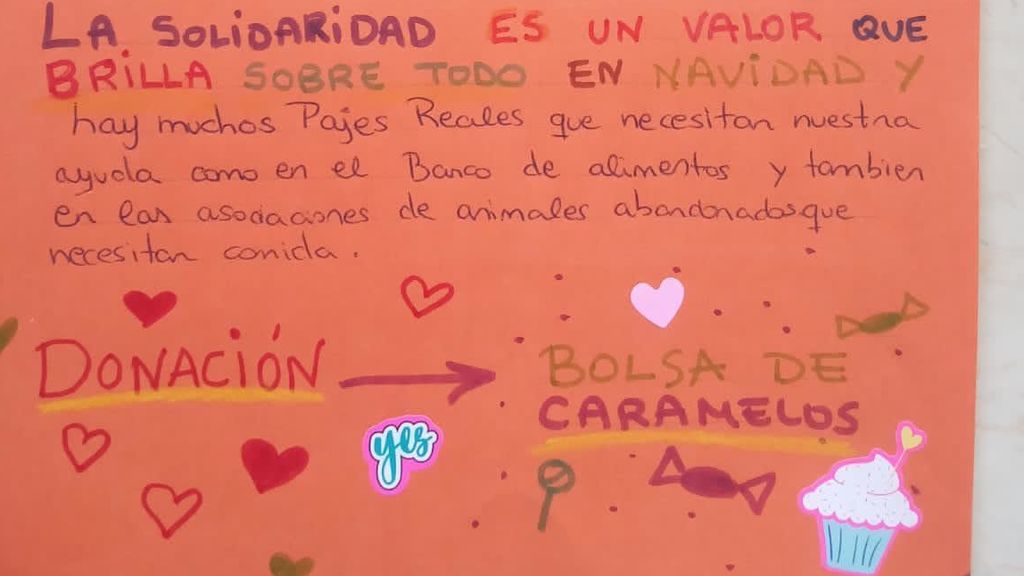 LA SOLIDARIDAD ES UN VALOR QUE
BRILLA SOBRE TODO EN NAVIDAD Y
hay muchos Pajes Reales que necesitan nuestra
ayuda como en el Banco de alimentos y tambien
en las asociaciones de animales abandonados que
necesitan comida.
DONACIÓN → BOLSA DE
CARAMELOS
yes